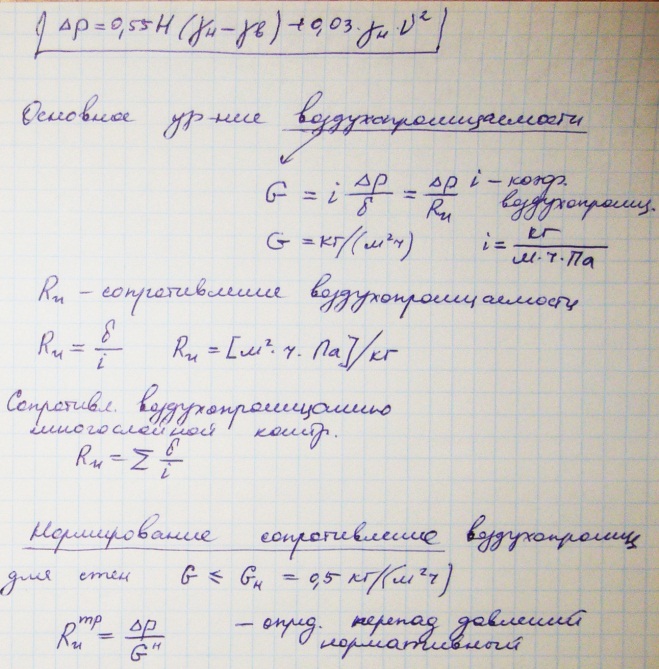 Δp = 0,55H (γн – γв) + 0,03 · γн · V²
Основное ур-ние воздухопроницаемости
G = i Δp/δ = Δp/Rи   i – коэф. воздухопрониц.
G = кг/(м²ч)   i = кг/(м·ч·Па)
Rи – сопротивление воздухопроницаемости
Rи = δ/i   Rи = [м²·ч·Па]/кг
Сопротивл. воздухопроницанию
многослойной констр.
Rи = Σ δ/i
Нормирование сопротивление воздухопрониц
для стен   G ≤ Gн = 0,5 кг/(м²ч)
Rиᵐᵖ = Δp/Gᴴ   – опред. перепад давлений
нормативный